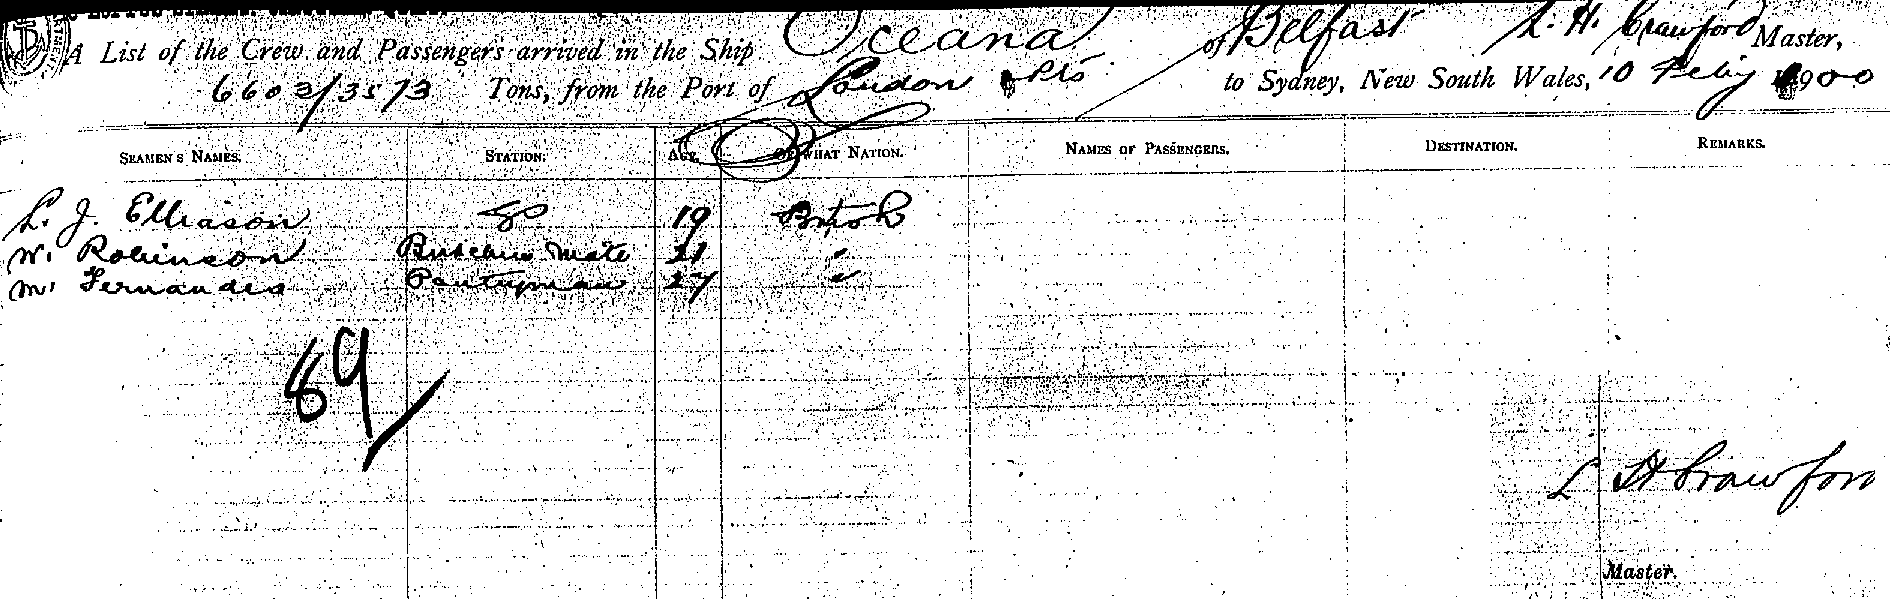 A List of the Crew and Passengers arrived in the Ship Oceana of Belfast L. H. Crawford Master,
6603/3573 Tons, from the Port of London & Pts to Sydney, New South Wales, 10 Feby 1900
SEAMEN'S NAMES. STATION. AGE. OF WHAT NATION. NAMES OF PASSENGERS. DESTINATION. REMARKS.
L. J. Elliason do 19 British
W. Robinson Butchers Mate 21 "
M. Fernandes Pantryman 27 "
89/
L H Crawford
Master.